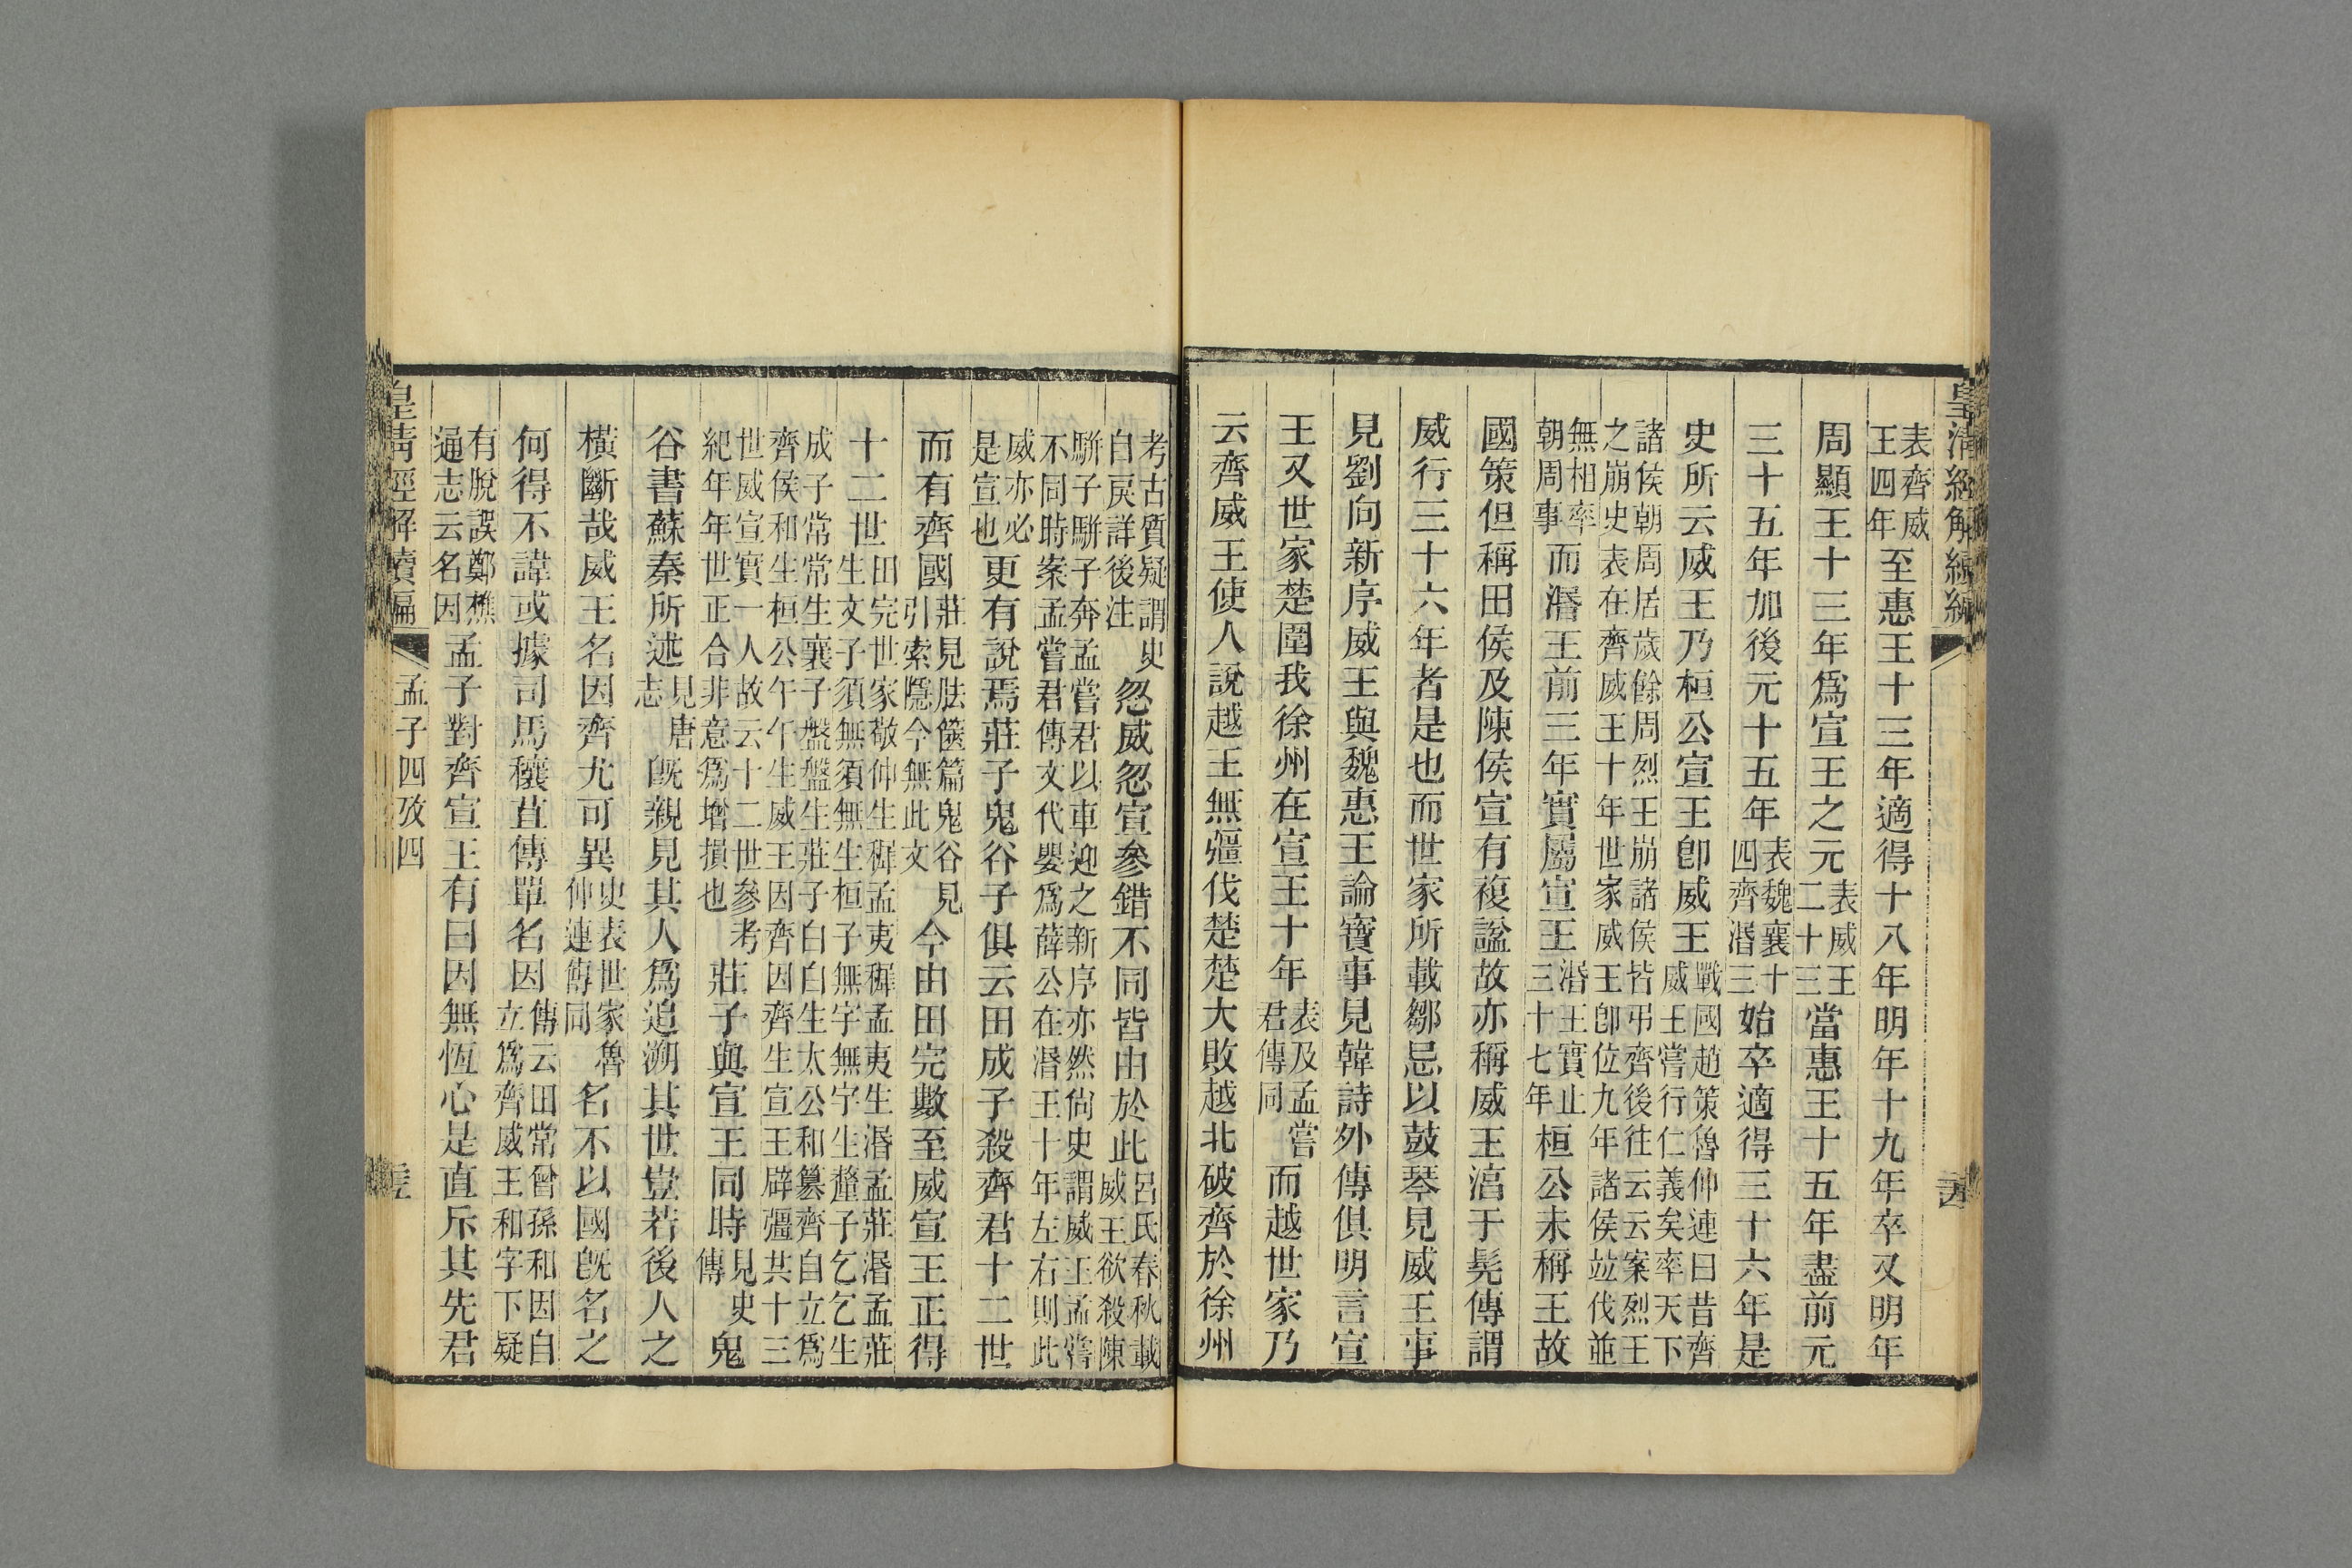 皇清經解續編
表齊威王四年至惠王十三年適得十八年明年十九年卒又明年
周顯王十三年爲宣王之元表威王二十三當惠王十五年盡前元
三十五年加後元十五年表魏襄十四齊湣三始卒適得三十六年是
史所云威王乃桓公宣王卽威王戰國趙策魯仲連曰昔齊威王嘗行仁義矣率天下
諸侯朝周居歲餘周烈王崩諸侯皆弔齊後往云云案烈王之崩史表在齊威王十年世家威王卽位九年諸侯竝伐並
無相率朝周事而湣王前三年實屬宣王湣王實止三十七年桓公未稱王故
國策但稱田侯及陳侯宣有複諡故亦稱威王湻于髡傳謂
威行三十六年者是也而世家所載鄒忌以鼓琴見威王事
見劉向新序威王與魏惠王論寶事見韓詩外傳俱明言宣
王又世家楚圍我徐州在宣王十年表及孟嘗君傳同而越世家乃
云齊威王使人說越王無彊伐楚楚大敗越北破齊於徐州
考古質疑謂史自戾詳後注忽威忽宣參錯不同皆由於此呂氏春秋載威王欲殺陳
駢子駢子奔孟嘗君以車迎之新序亦然尙史謂威王孟嘗不同時案孟嘗君傳文代嬰爲薛公在湣王十年左右則此
威亦必是宣也更有說焉莊子鬼谷子俱云田成子殺齊君十二世
而有齊國莊見胠篋篇鬼谷見引索隱今無此文今由田完數至威宣王正得
十二世田完世家敬仲生穉孟夷穉孟夷生湣孟莊湣孟莊生文子須無須無生桓子無宇無宇生釐子乞乞生
成子常常生襄子盤盤生莊子白白生太公和篡齊自立爲齊侯和生桓公午午生威王因齊因齊生宣王辟彊共十三
世威宣實一人故云十二世參考紀年年世正合非意爲增損也莊子與宣王同時見史傳鬼
谷書蘇秦所述見唐志旣親見其人爲追溯其世豈若後人之
橫斷哉威王名因齊尤可異史表世家魯仲連傳同名不以國旣名之
何得不諱或據司馬穰苴傳單名因傳云田常曾孫和因自立爲齊威王和字下疑
有脫誤鄭樵通志云名因孟子對齊宣王有曰因無恆心是直斥其先君
皇清經解續編 孟子四攷四